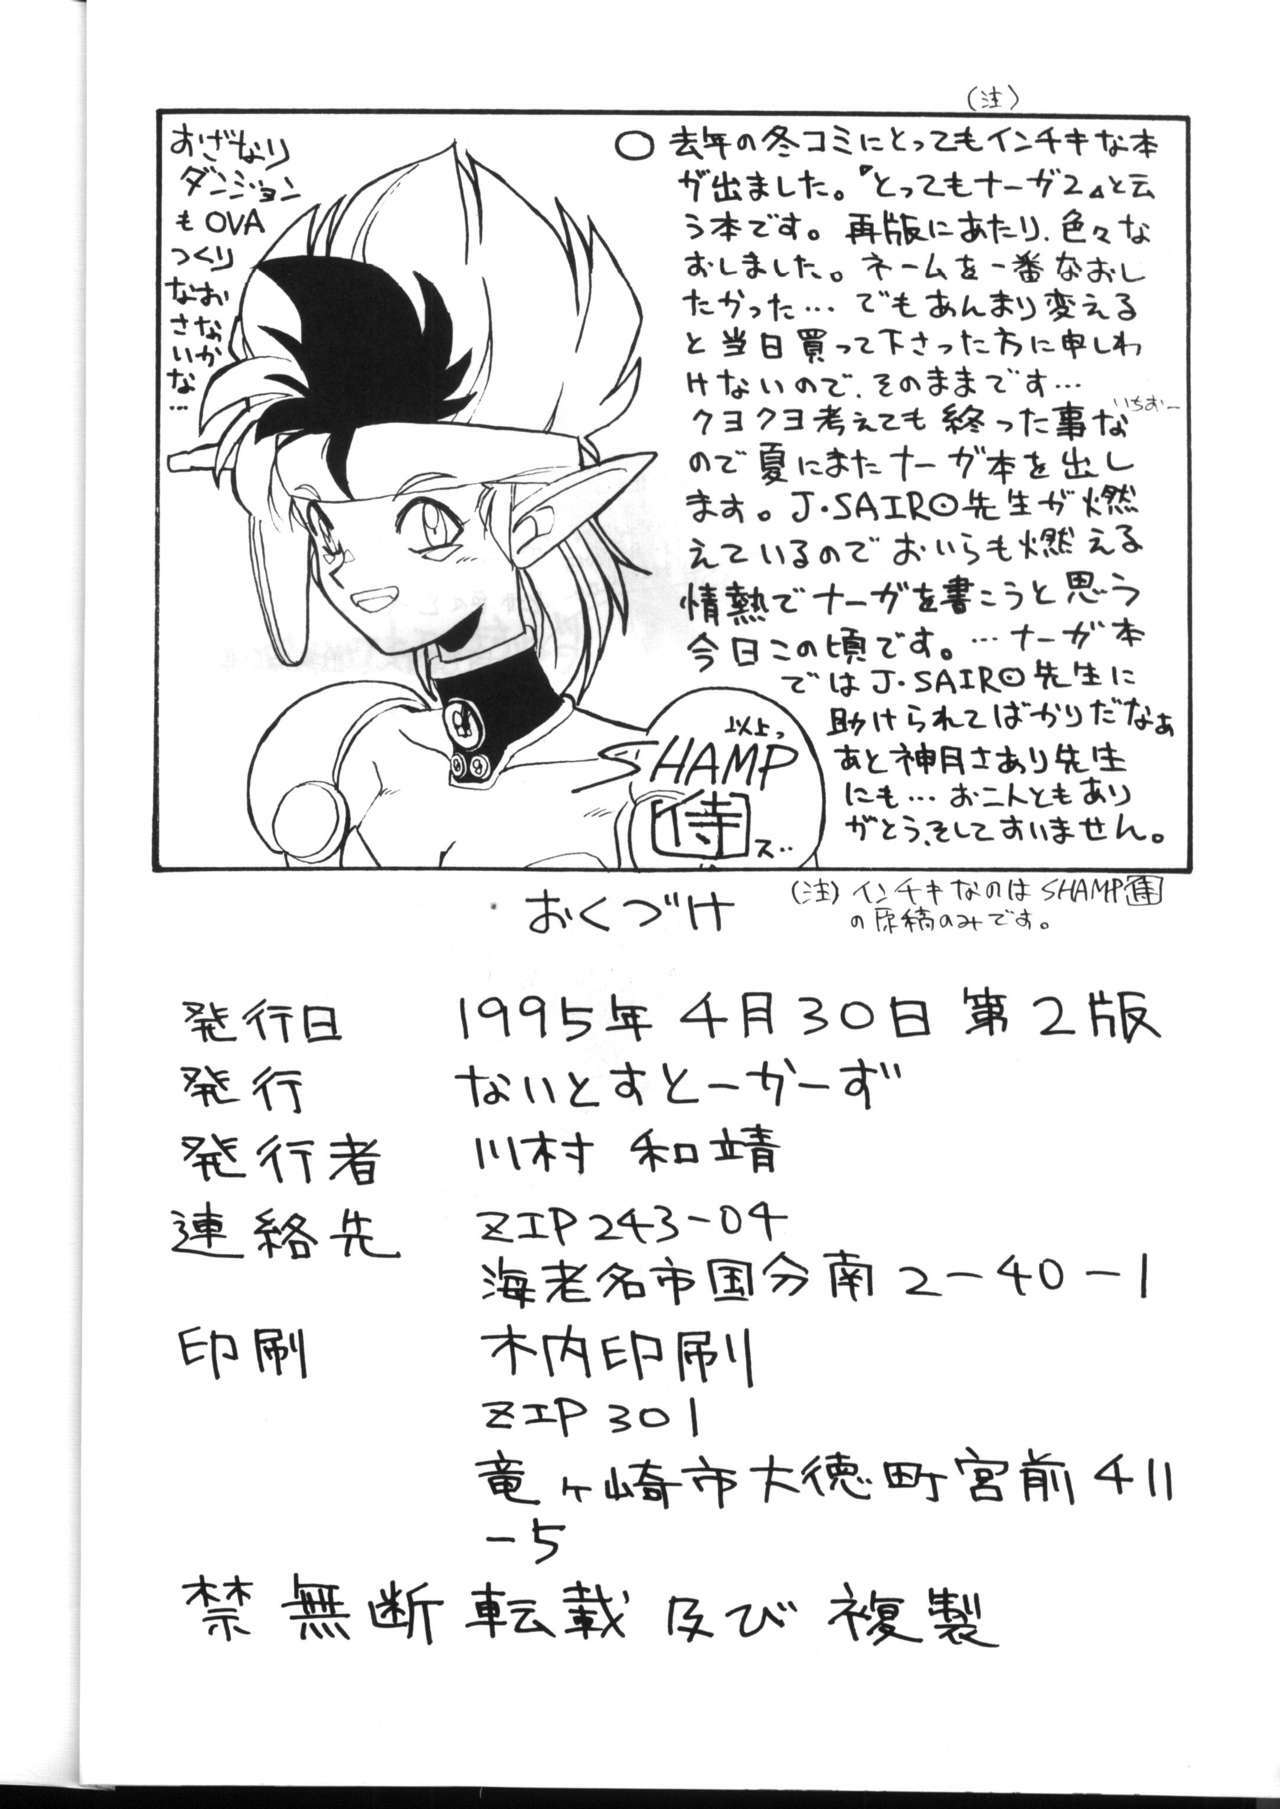 (注)
○去年の冬コミにとってもインチキな本
が出ました。『とってもナーガ2』と云
う本です。再版にあたり、色々な
おしました。ネームを一番なおし
たかった…でもあんまり変える
と当日買って下さった方に申しわ
けないので、そのままです…
いちおー
クヨクヨ考えても終った事な
ので夏にまたナーガ本を出し
ます。J・SAIRO先生が燃
えているのでおいらも燃える
情熱でナーガを書こうと思う
今日この頃です。…ナーガ本
ではJ・SAIRO先生に
助けられてばかりだなぁ
あと神月さあり先生
にも…お二人ともあり
がとう、そしてすいません。
おざなり
ダンジョン
もOVA
つくり
なお
さない
かな…
以上っ
SHAMP
侍
ズ…
(注)インチキなのはSHAMP侍
の原稿のみです。
おくづけ
発行日 1995年4月30日第2版
発行 ないとすとーかーず
発行者 川村 和靖
連絡先 ZIP243-04
海老名市国分南2-40-1
印刷 木内印刷
ZIP301
竜ヶ崎市大徳町宮前411
-5
禁無断転載及び複製